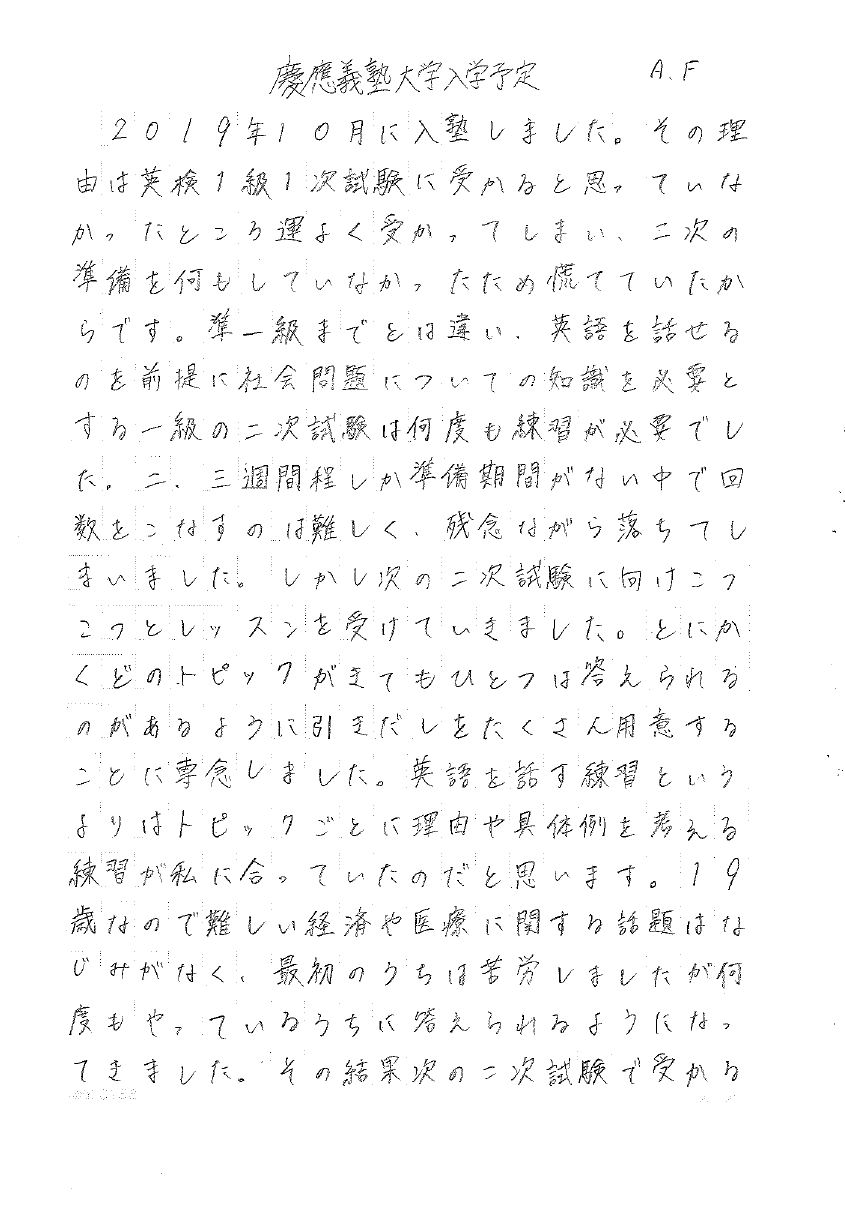 慶應義塾大学入学予定 A.F
2019年10月に入塾しました。その理
由は英検1級1次試験に受かると思っていな
かったところ運よく受かってしまい、二次の
準備を何もしていなかったため慌てていたか
らです。準一級までとは違い、英語を話せる
のを前提に社会問題についての知識を必要と
する一級の二次試験は何度も練習が必要でし
た。二、三週間程しか準備期間がない中で回
数をこなすのは難しく、残念ながら落ちてし
まいました。しかし次の二次試験に向けこつ
こつとレッスンを受けていきました。とにか
くどのトピックがきてもひとつは答えられる
のがあるように引きだしをたくさん用意する
ことに専念しました。英語を話す練習という
よりはトピックごとに理由や具体例を考える
練習が私に合っていたのだと思います。19
歳なので難しい経済や医療に関する話題はな
じみがなく、最初のうちは苦労しましたが何
度もやっているうちに答えられるようになっ
てきました。その結果次の二次試験で受かる